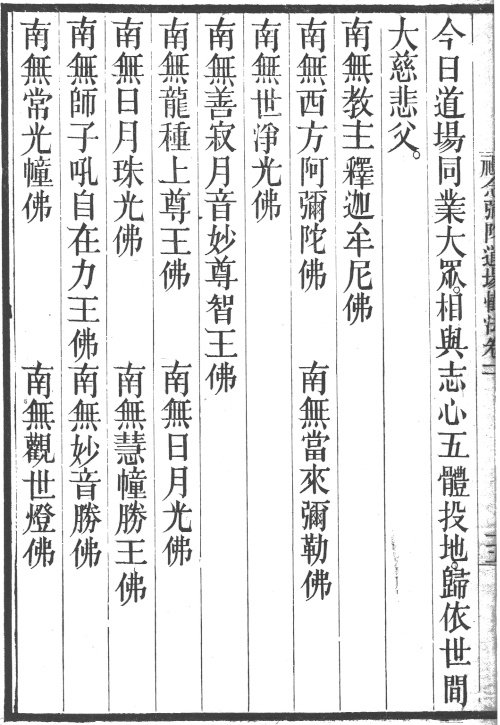 今日道場同業大眾。相與志心五體投地。歸依世間
大慈悲父。
南無教主釋迦牟尼佛
南無西方阿彌陀佛　南無當來彌勒佛
南無世淨光佛
南無善寂月音妙尊智王佛
南無龍種上尊王佛　南無日月光佛
南無日月珠光佛　南無慧幢勝王佛
南無師子吼自在力王佛　南無妙音勝佛
南無常光幢佛　南無觀世燈佛